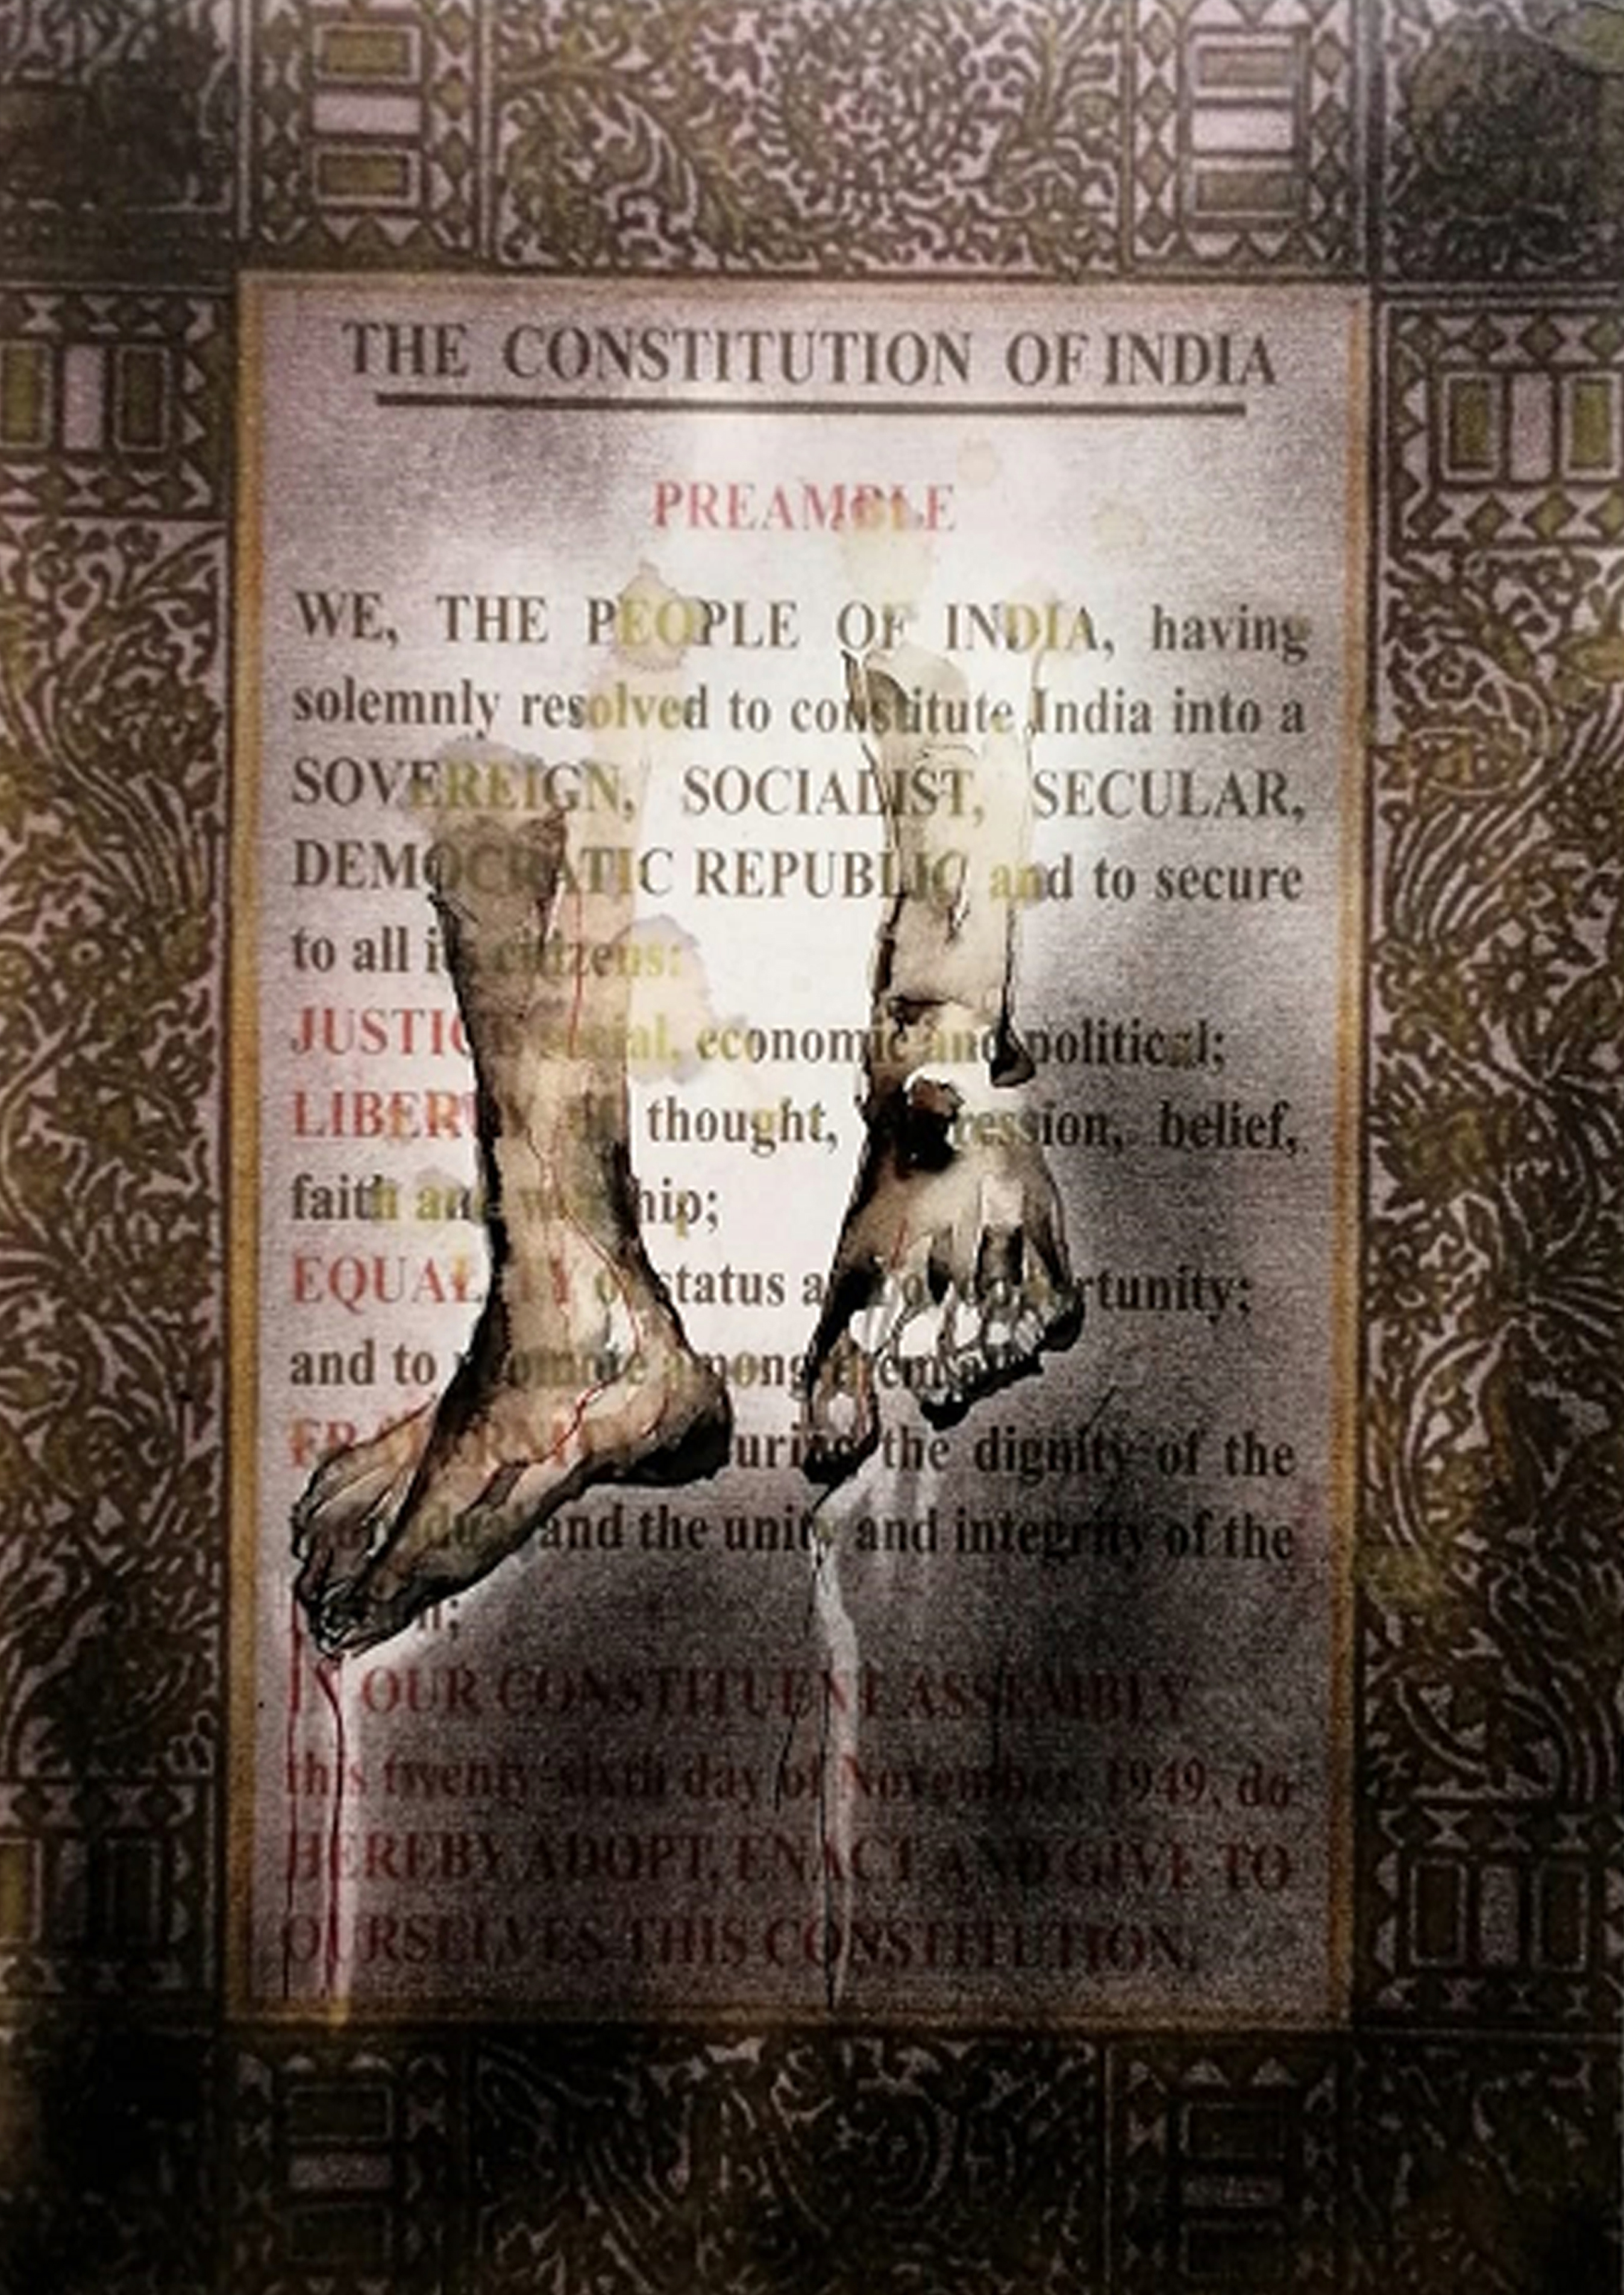 THE CONSTITUTION OF INDIA
PREAMBLE
WE, THE PEOPLE OF INDIA, having
solemnly resolved to constitute India into a
SOVEREIGN, SOCIALIST, SECULAR,
DEMOCRATIC REPUBLIC and to secure
to all its citizens:
JUSTICE social, economic and political;
LIBERTY of thought, expression, belief,
faith and worship;
EQUALITY of status and of opportunity;
and to promote among them all
FRATERNITY assuring the dignity of the
individual and the unity and integrity of the
IN OUR CONSTITUENT ASSEMBLY
this twenty-sixth day of November, 1949, do
HEREBY ADOPT, ENACT AND GIVE TO
OURSELVES THIS CONSTITUTION.